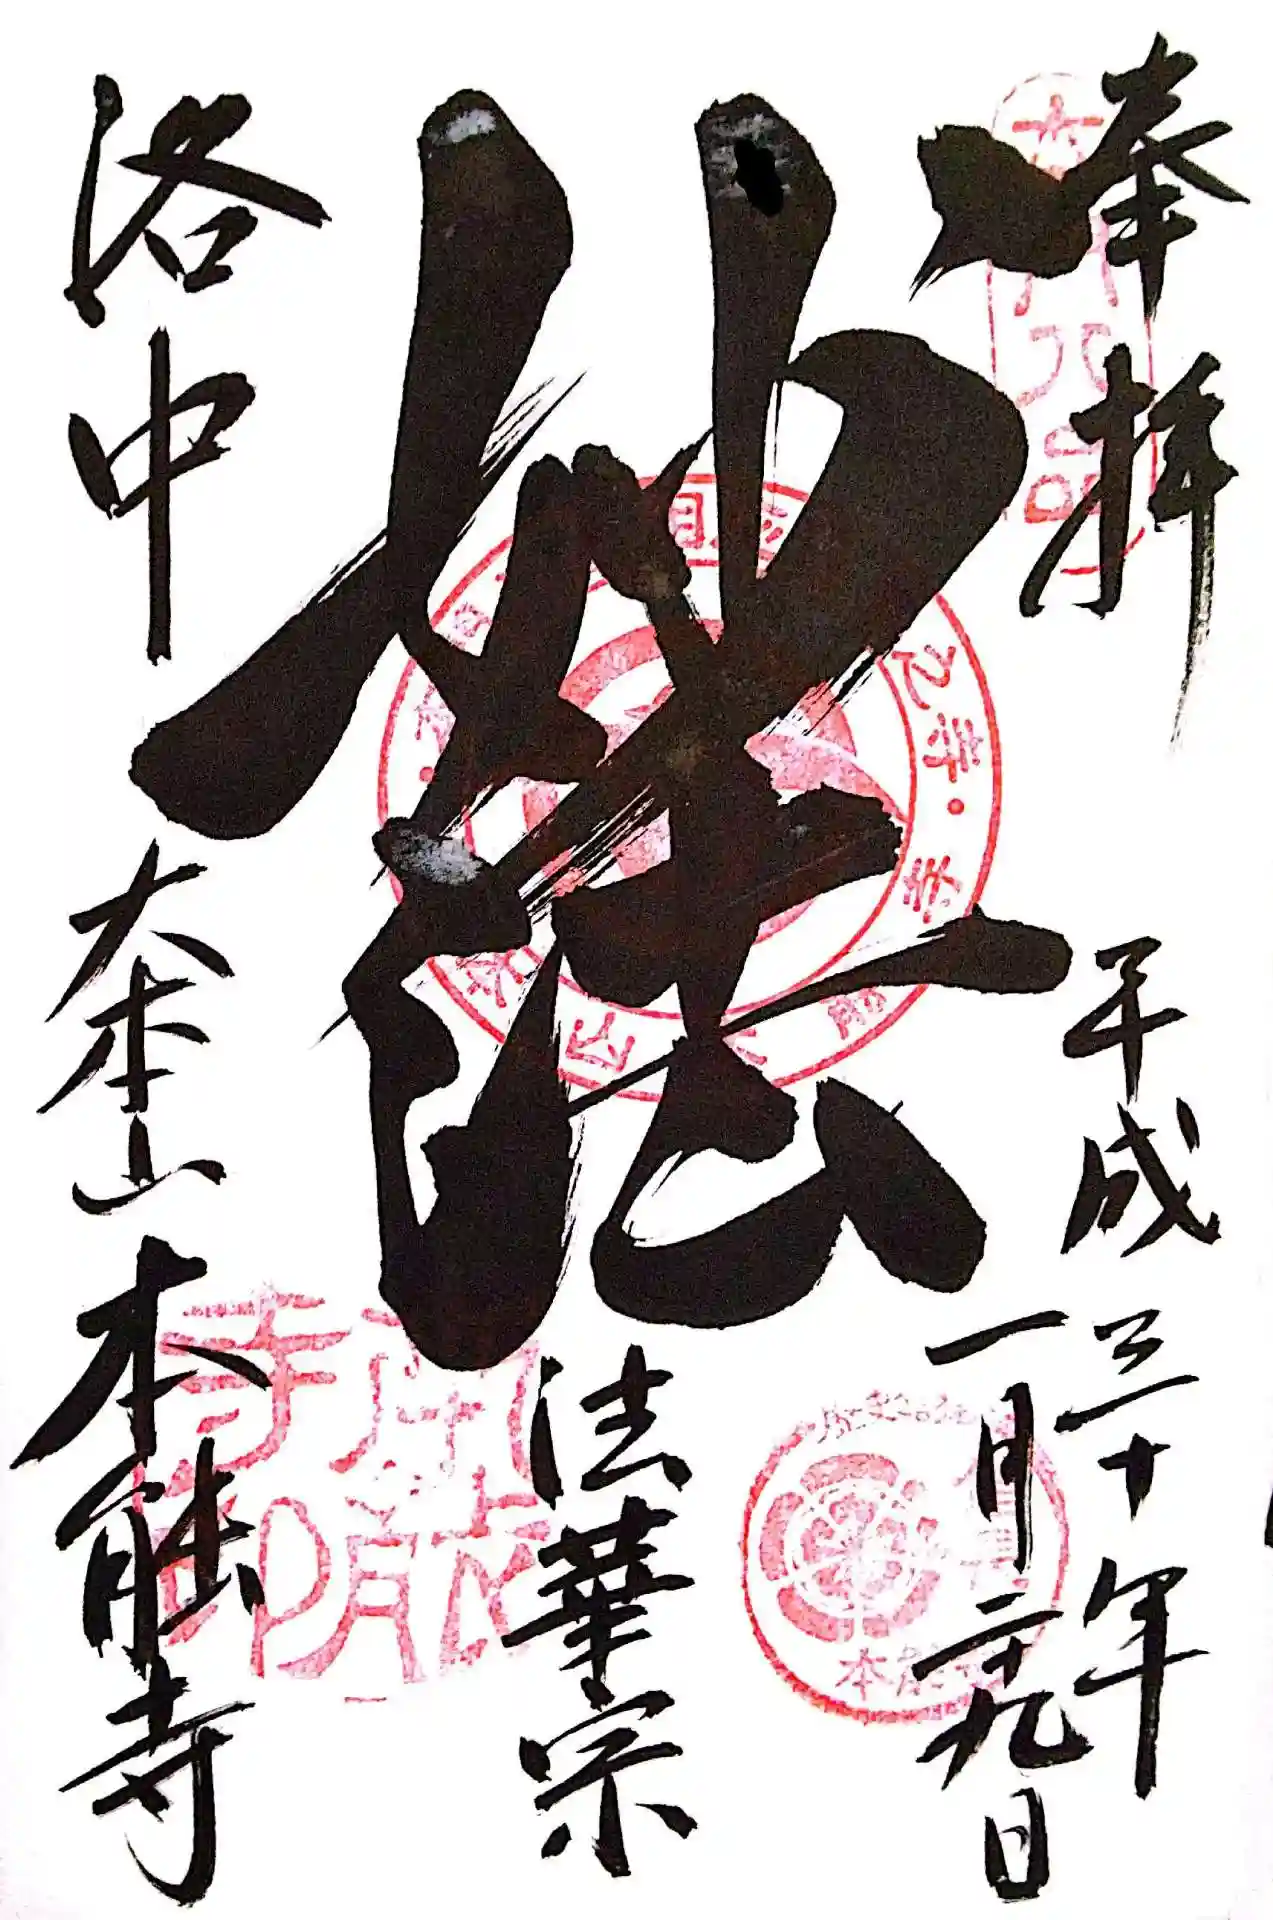 奉拝
平成三十年
一月二十九日
妙法
法華宗
洛中 大本山 本能寺
本能寺